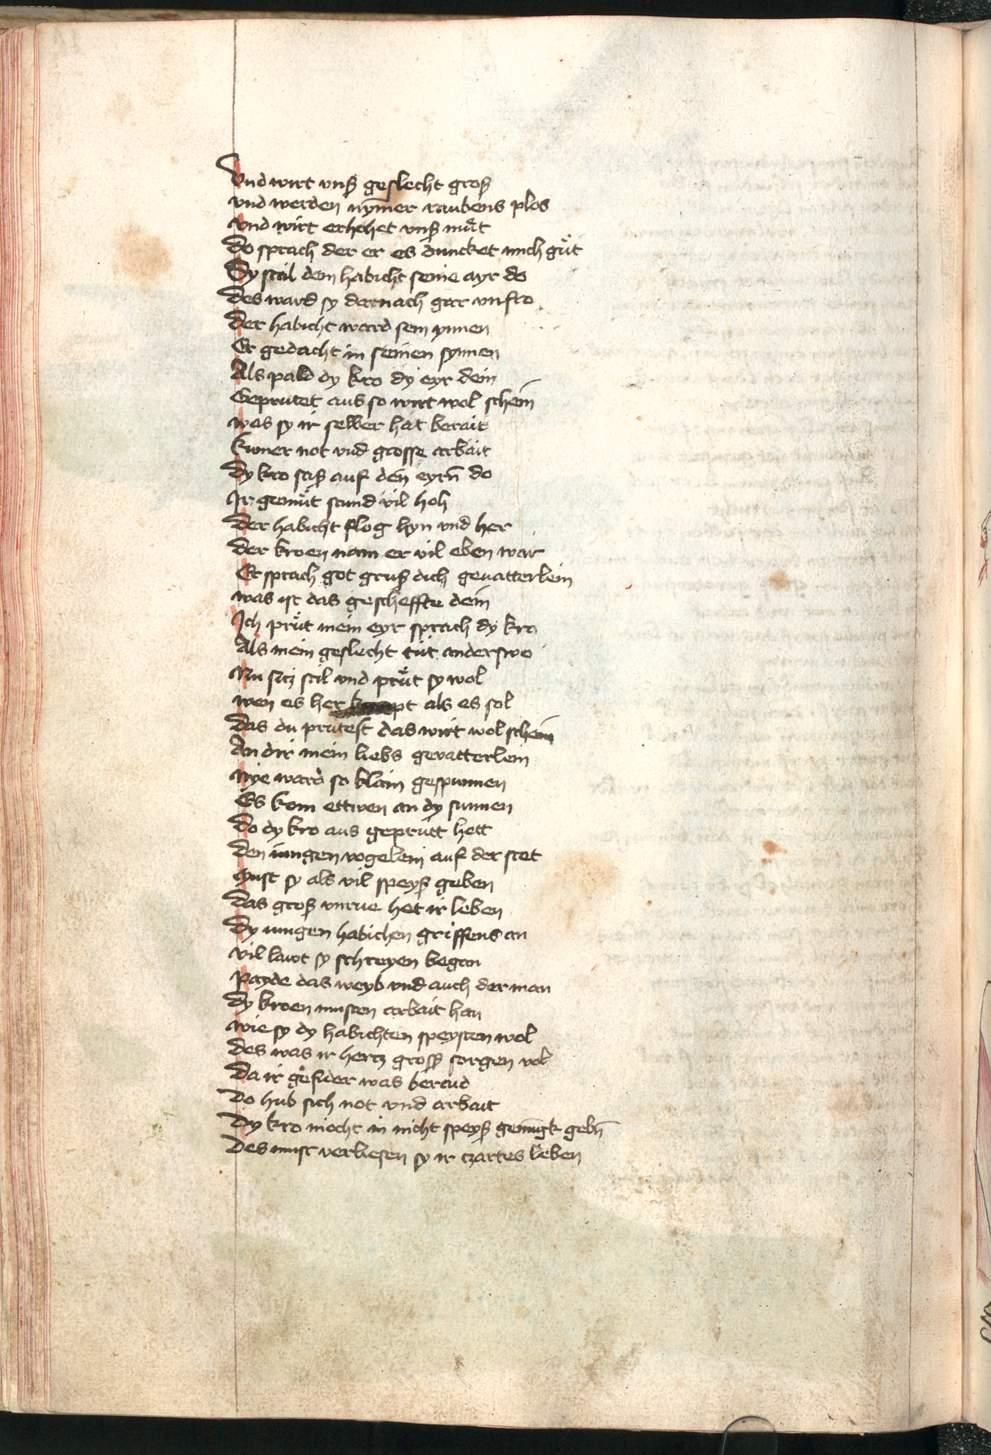 Vnd wirt vnß geslecht groß
vnd werden nȳmer raubens plos
vnd wirt erhohet vnß müt
Do sprach der er es duncket mich güt
Dy stal dem habicht seine ayr do
Des ward sy dernach gar vnfro
Der habicht ward sein ynnen
Er gedacht in seinen synnen
Als pald dy kro dy eyr dein
Geprutet aus so wirt wol schein
was sy ir selber hat berait
kumer not vnd grosse arbait
Dy kro saß auf den eyrn̄ do
Ir gemüt stund vil hoh
Der habicht flog hyn vnd her
Der kroen nam er vil eben war
Er sprach got gruß dich geuatterlein
was ist das gescheffte dein
Ich prüt mein eyr sprach dy kro
Als mein geslecht tüt anderswo
Nu sitz stil vnd prüt sy wol
wen es her pt als es sol
Das du prutest das wirt wol schein
An dir mein liebs geuatterlein
Nye ward so klain gespunnen
Es kom ettwen an dy sunnen
Do dy kro aus geprütt hett
Den iungen vogelein auf der stet
Must sy als vil speyß geben
Das groß vnrue het ir leben
Dy iungen habichen griffens an
vil lawt sy schreyen began
Payde das weyb vnd auch der man
Dy kroen musten arbait han
wie sy dy habichten speysten wol
Des was ir hertz groß sorgen vol
Da ir gefider was beraid
Do hub sich not vnd arbait
Dy kro mocht in nicht speyß genungk gebn̄
Des must verliesen sy ir czartes leben